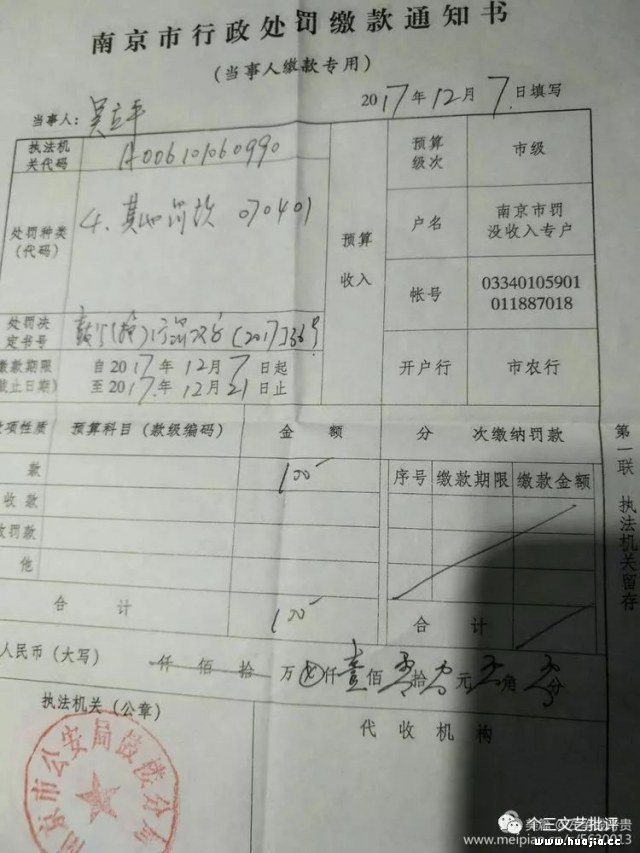 南京市行政处罚缴款通知书
(当事人缴款专用)
2017年12月7日填写
当事人: 吴立平
执法机关代码 A006101060990
预算级次 市级
处罚种类(代码) 4、其他罚款 070401
预算收入
户名 南京市罚没收入专户
帐号 03340105901011887018
处罚决定书号 行罚决字(2017)366号
缴款期限 自2017年12月7日起
截止日期) 至2017年12月21日止
开户行 市农行
项性质 预算科目(款级编码) 金 额 分 次缴纳罚款
款 100
序号 缴款期限 缴款金额
收款
罚款
他
合 计 100
合 计
人民币(大写) 仟佰拾万 仟壹佰零拾零元零角零分
执法机关(公章)
代收机构
南京市公安局鼓楼分局
第一联 执法机关留存
个三文艺批评
www.huajia.cc